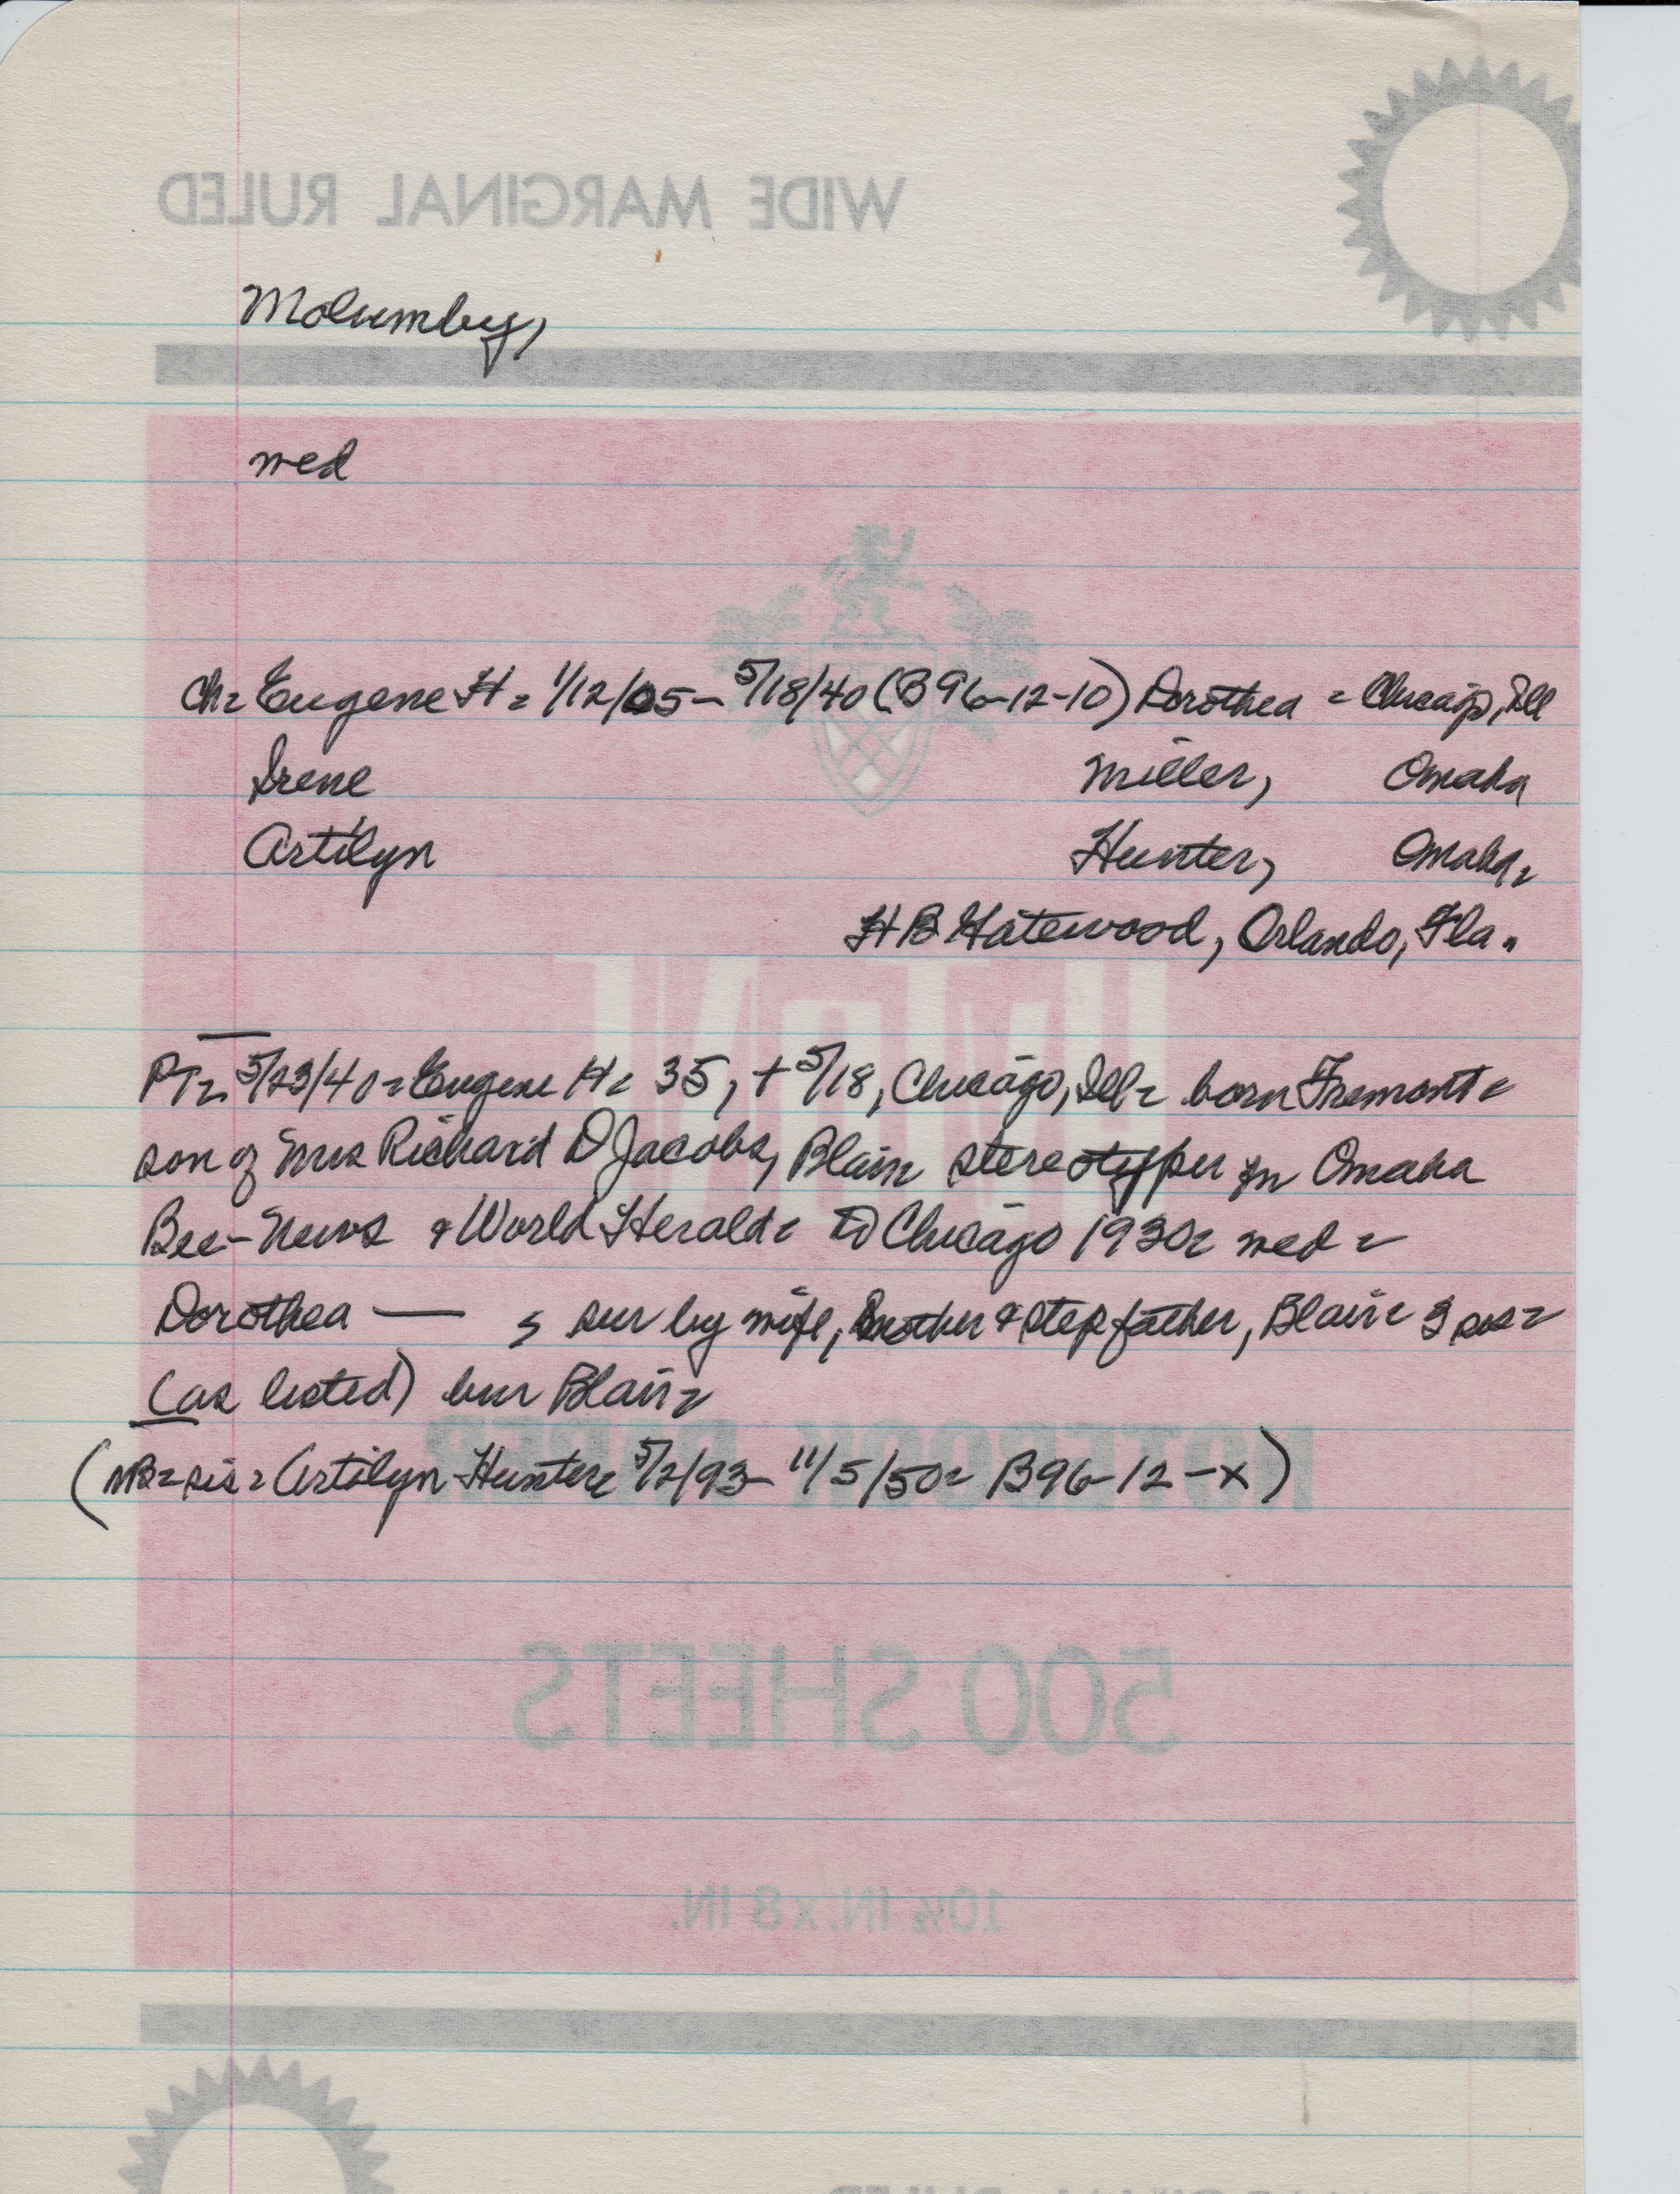 WIDE MARGINAL RULED
Molumby,
med
Ch= Eugene H = 1/12/05 - 5/18/40 (B96-12-10) Dorothea = Chicago, Ill
Irene Miller, Omaha
Artilyn Hunter, Omaha=
H B Hatewood, Orlando, Fla.
PT= 5/23/40 = Eugene H= 35, + 5/18, Chicago, Ill= born Fremont=
son of Mrs Richard D Jacobs, Blair stereotyper on Omaha
Bee-News & World Herald= to Chicago 1930= med =
Dorothea — sur by wife, mother & stepfather, Blair= 3 sis=
(as listed) bur Blair=
(NB= sis= Artilyn Hunter= 5/2/93 - 11/5/50= B96-12-x)
NOTEBOOK PAPER
500 SHEETS
10½ IN. x 8 IN.